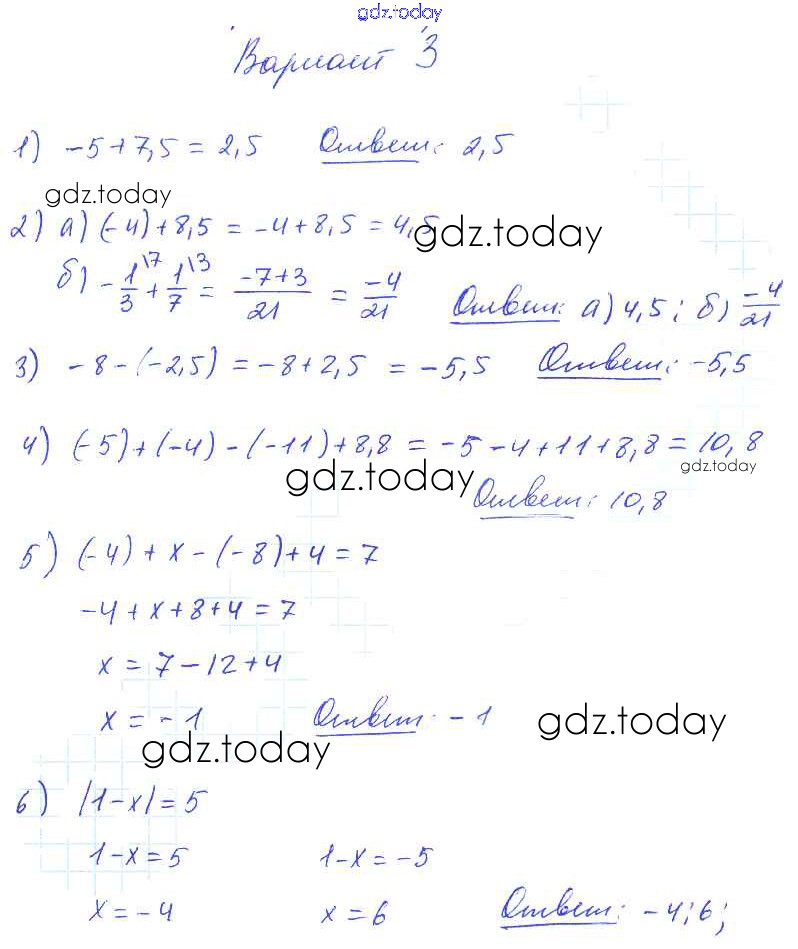 gdz.today
Вариант 3
1) -5+7,5 = 2,5 Ответ: 2,5
gdz.today
2) а) (-4)+8,5 = -4+8,5 = 4,5 gdz.today
б) -1/3\7 + 1/7\3 = (-7+3)/21 = -4/21 Ответ: а) 4,5; б) -4/21
3) -8-(-2,5) = -8+2,5 = -5,5 Ответ: -5,5
4) (-5)+(-4)-(-11)+8,8 = -5-4+11+8,8 = 10,8
gdz.today gdz.today
Ответ: 10,8
5) (-4)+x-(-8)+4=7
-4+x+8+4=7
x = 7-12+4
x = -1 Ответ: -1 gdz.today
gdz.today
6) |1-x|=5
1-x=5 1-x=-5
x=-4 x=6 Ответ: -4; 6;